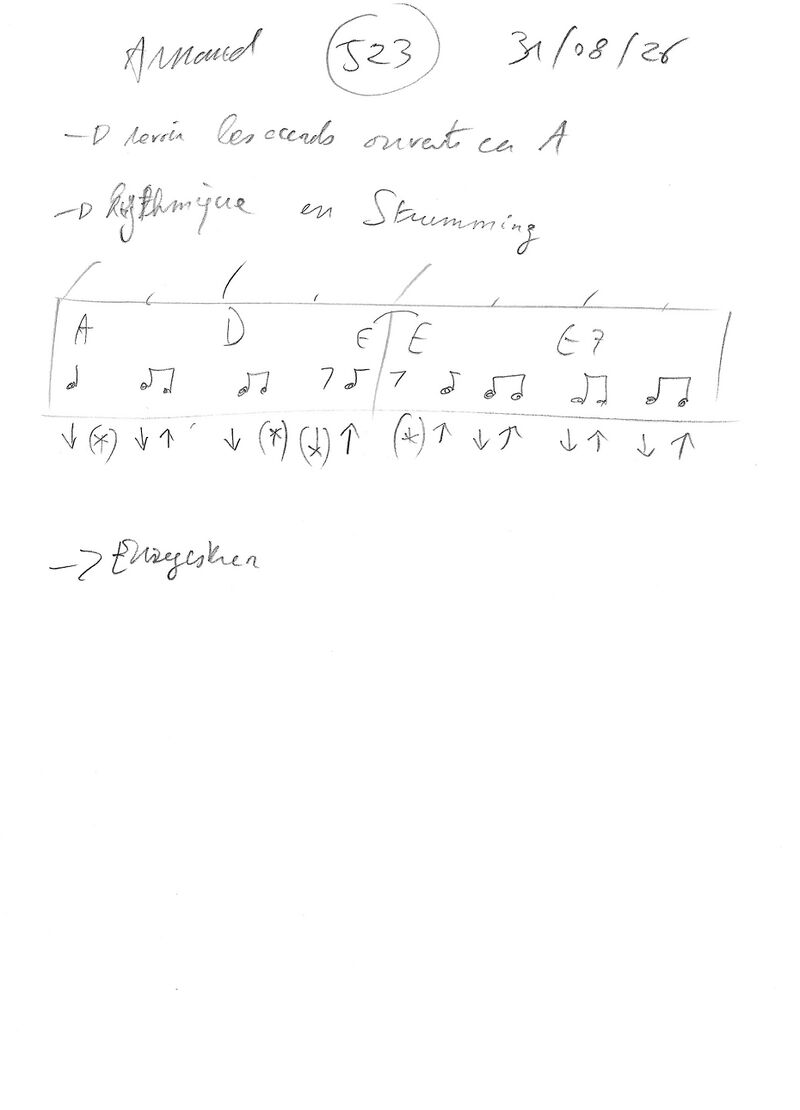 Arnaud J23 31/08/26
→ revoir les accords ouverts en A
→ Rythmique en Strumming
A D E E E7
↓ (*) ↓ ↑ ↓ (*) (↓) ↑ (*) ↑ ↓ ↑ ↓ ↑ ↓ ↑